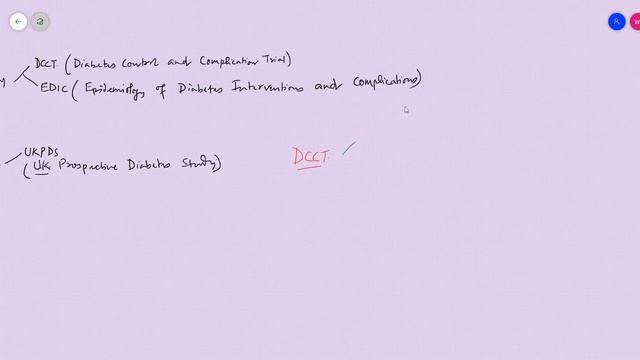 DCCT (Diabetes Control and Complication Trial)
EDIC (Epidemiology of Diabetes Interventions and Complications)
UKPDS
(UK Prospective Diabetes Study)
DCCT